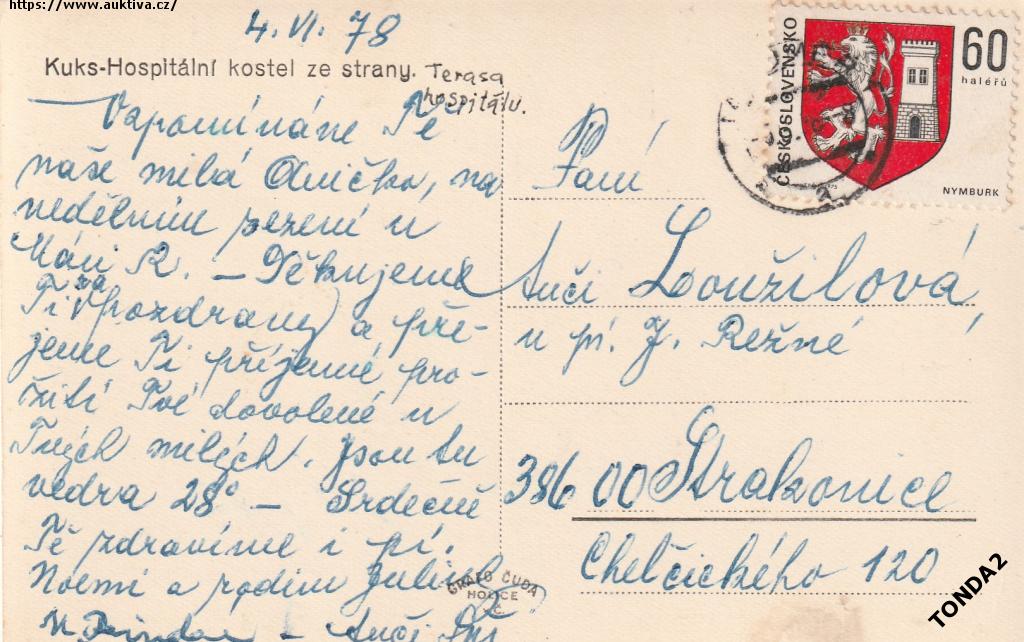 https://www.auktiva.cz/
4. VI. 78
Kuks-Hospitální kostel ze strany. Terasa
hospitálu.
Vzpomínáme Tě
naše milá Aničko, na
nedělním sezení u
Máni R. – Děkujeme
Ti za pozdravy a pře-
jeme Ti příjemné pro-
žití Tvé dovolené u
Tvých milých. Jsou tu
vedra 28° – Srdečně
Tě zdravíme i pí.
Noemi a rodin
– Anči
GRAFO ČUDA
HOLICE
V Č.
ČESKOSLOVENSKO
60
haléřů
NYMBURK
Paní
Anči Loužilová
u pí. J. Režné
386 00 Strakonice
Chelčického 120
TONDA2